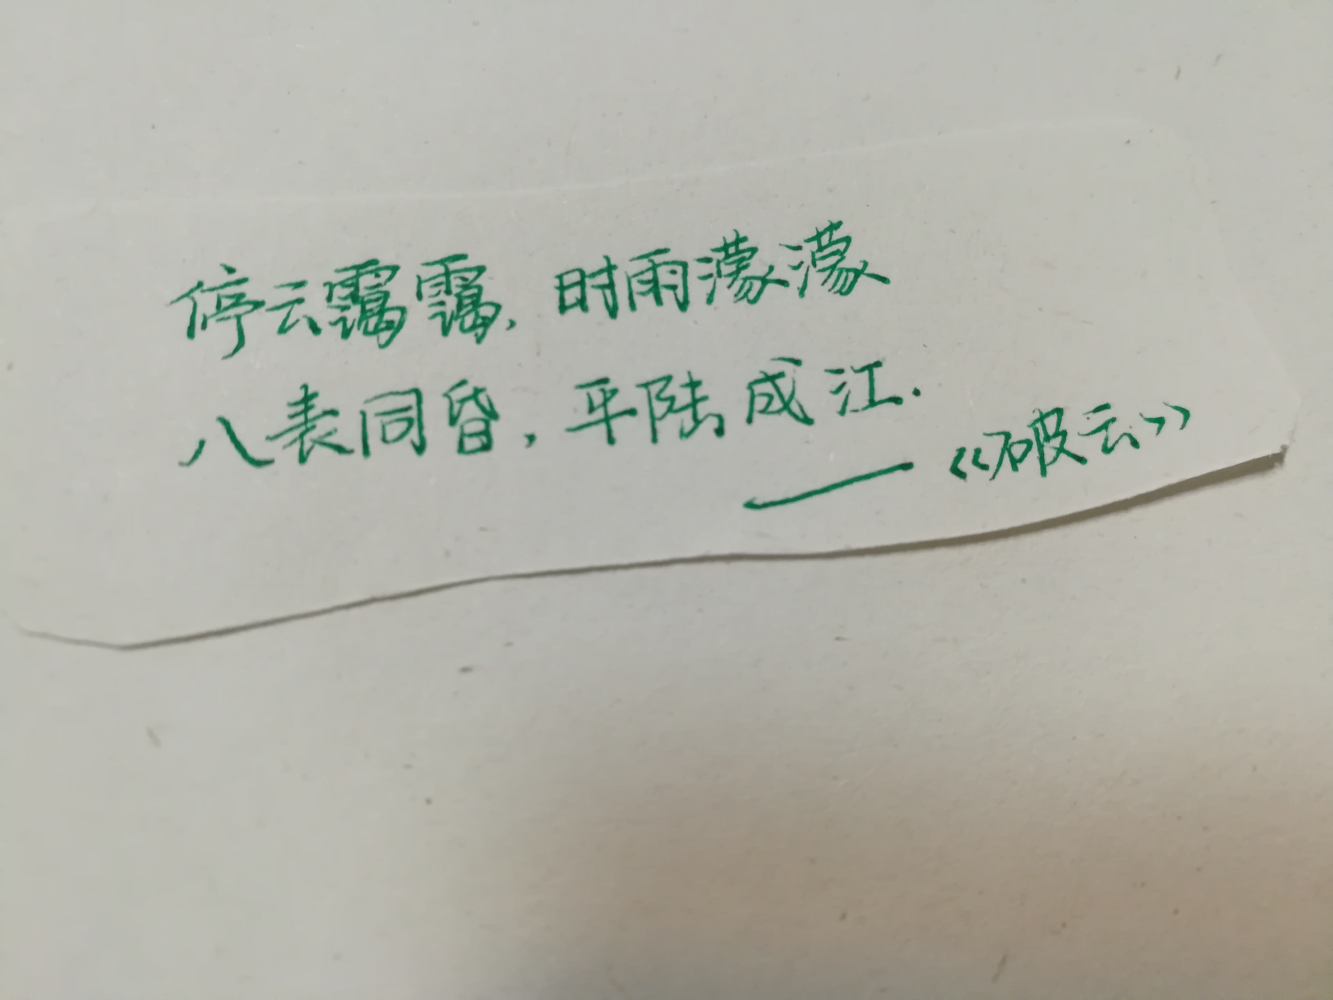 停云霭霭,时雨濛濛
八表同昏,平陆成江.
——《破云》